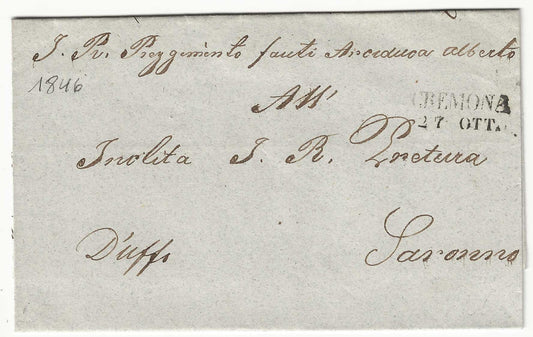 I. R. Reggimento fanti Arciduca Alberto
1846
All'
CREMONA
27 OTT.
Inclita I. R. Pretura
D'uffo
Saronno